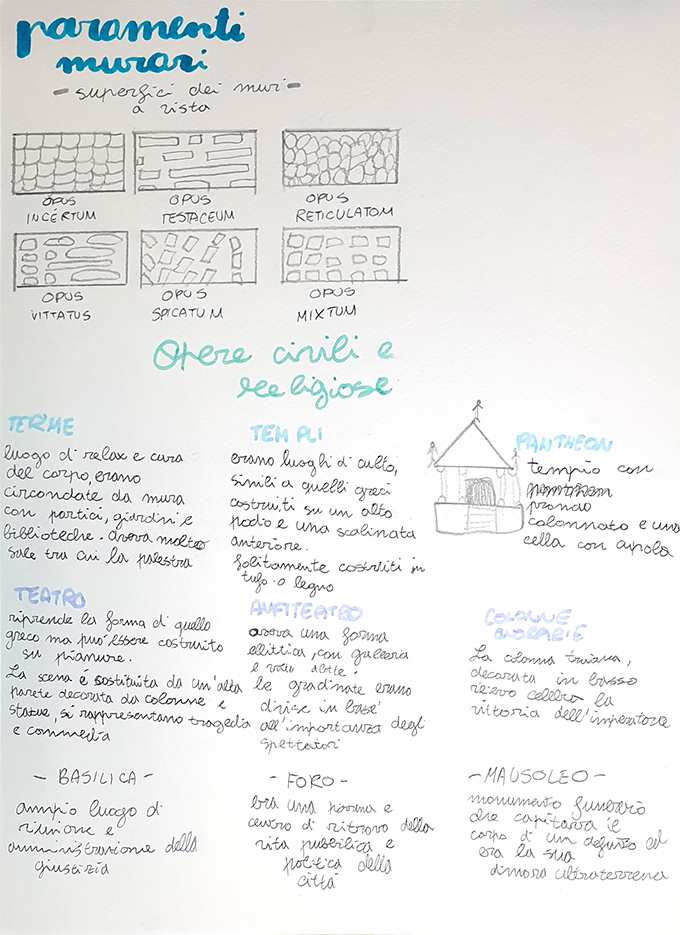 paramenti
murari
- superfici dei muri -
a vista
OPUS
INCERTUM
OPUS
TESTACEUM
OPUS
RETICULATOM
OPUS
VITTATUS
OPUS
SPICATUM
OPUS
MIXTUM
Opere civili e
religiose
TERME
luogo di relax e cura
del corpo, erano
circondate da mura
con portici, giardini e
biblioteche. Aveva molte
sale tra cui la palestra
TEMPLI
erano luoghi di culto,
simili a quelli greci
costruiti su un alto
podio e una scalinata
anteriore.
Solitamente costruiti in
tufo o legno
PANTHEON
tempio con
pronao
colonnato e una
cella con cupola
TEATRO
riprende la forma di quello
greco ma può essere costruito
su pianure.
La scena è sostituita da un'alta
parete decorata da colonne e
statue, si rappresentano tragedia
e commedia
ANFITEATRO
aveva una forma
ellittica, con galleria
e
le gradinate erano
divise in base
all'importanza degli
spettatori
COLONNE
ONORARIE
La colonna traiana,
decorata in basso
rilievo celebra la
vittoria dell'imperatore
- BASILICA -
ampio luogo di
riunione e
amministrazione della
giustizia
- FORO -
era una piazza e
centro di ritrovo della
vita pubblica e
politica della
città
- MAUSOLEO -
monumento funerario
che capitava il
corpo di un defunto ed
era la sua
dimora ultraterrena